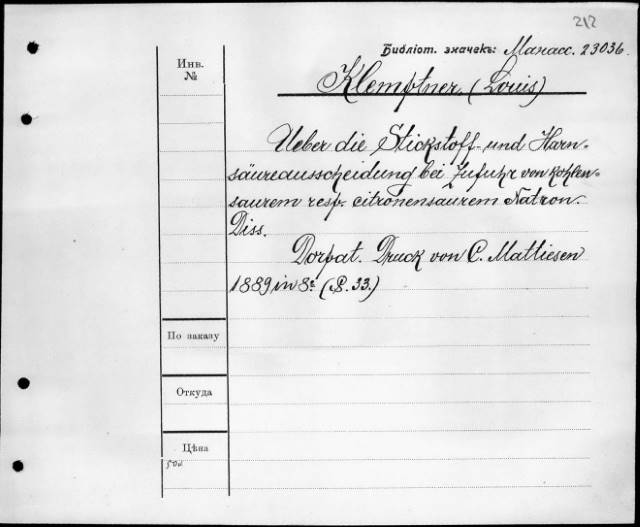 212
Библіот. значекъ: Манасс. 23036.
Инв.
№
Klemptner, (Louis)
Ueber die Stickstoff- und Harn-
säureausscheidung bei Zufuhr von kohlen-
saurem resp. citronensaurem Natron.
Diss.
Dorpat. Druck von C. Mattiesen
1889 in 8º (S. 33.)
По заказу
Откуда
Цѣна